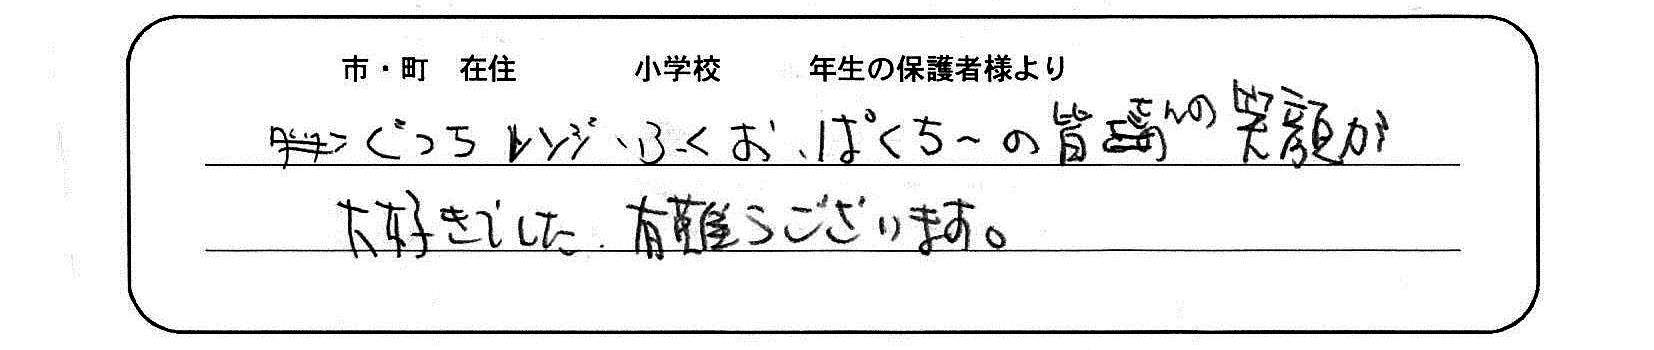 市・町 在住 小学校 年生の保護者様より
ぐっち レンジ、ふくお、ぱくち〜の皆さんの笑顔が
大好きでした。有難うございます。